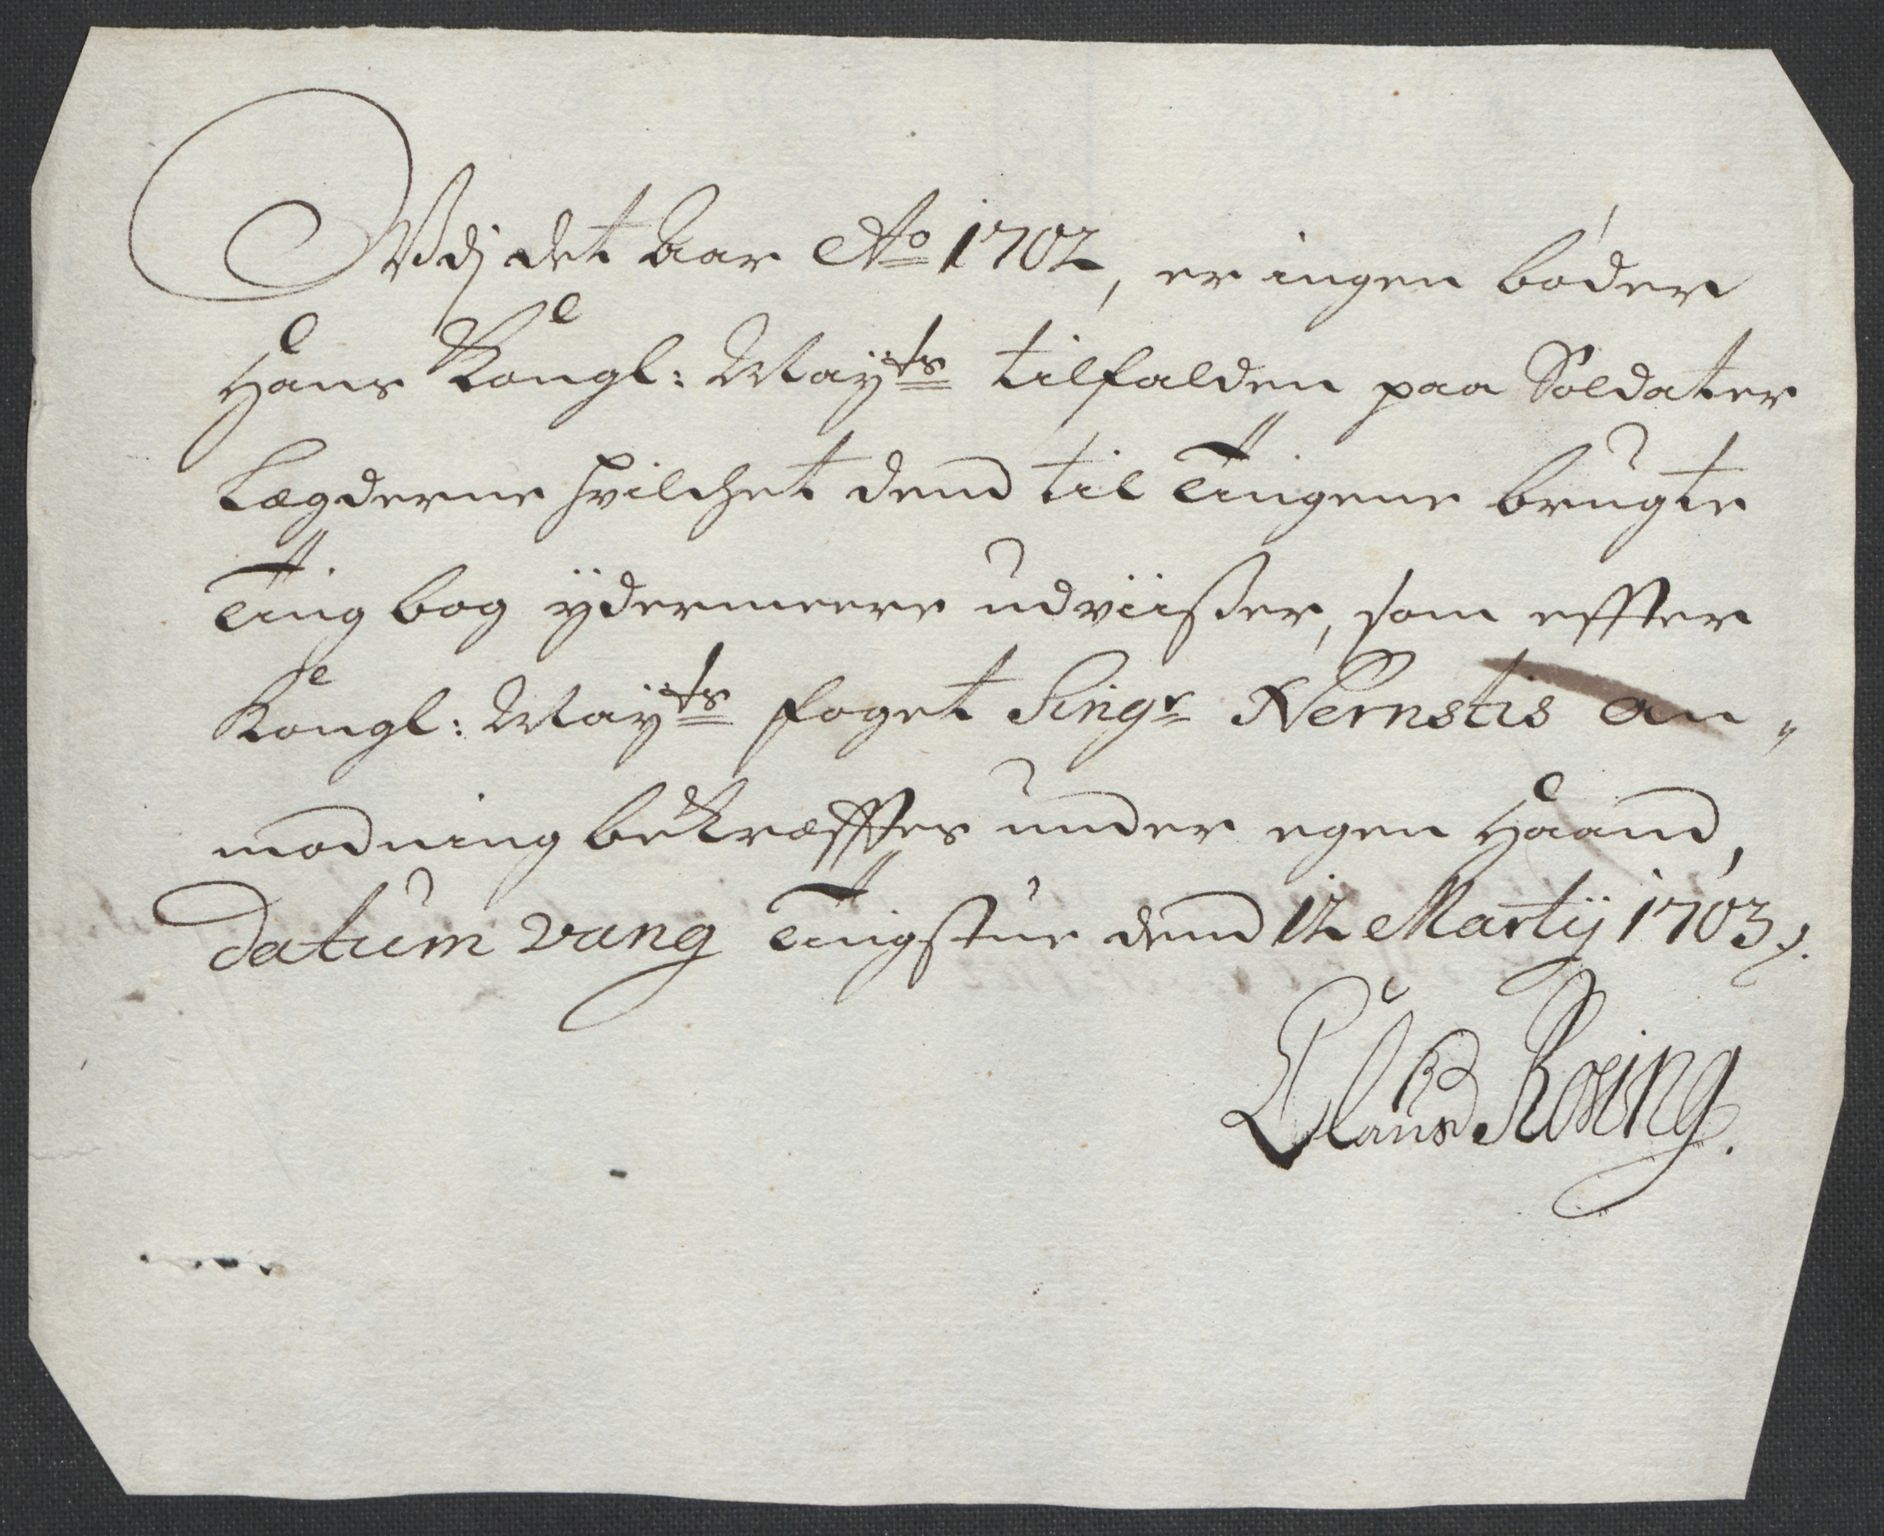 Udj det Aar Ao 1702, er ingen bøder
Hans Kongl: Mayts tilfalden paa Soldater
Lægderne hvilchet dend til Tingene brugte
Ting bog ÿdermeere udviißer, som effter
Kongl: Maÿts foget Singr Nernstis an,,
modning bekræfftes under egen Haand,
Datum Vang Tingstue dend 12 Martij 1703.
Claus Rosing.